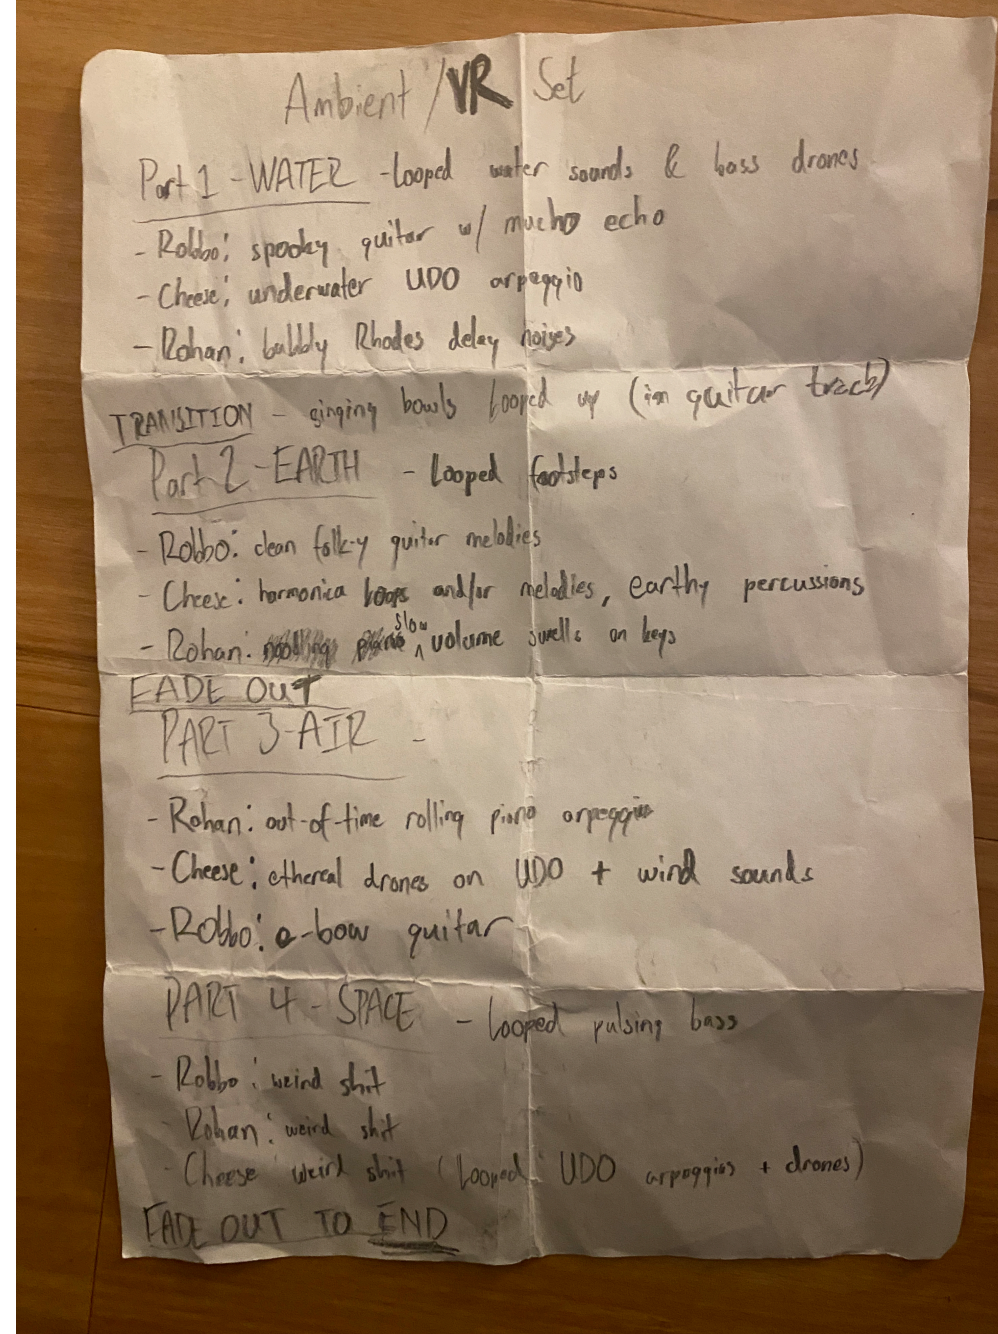 Ambient/VR Set
Part 1 - WATER - Looped water sounds & bass drones
- Robbo: spooky guitar w/ mucho echo
- Cheese: underwater UDO arpeggio
- Rohan: bubbly Rhodes delay noises
TRANSITION - singing bowls looped up (in guitar track)
Part 2 - EARTH - Looped footsteps
- Robbo: clean folk-y guitar melodies
- Cheese: harmonica loops and/or melodies, earthy percussions
- Rohan: slow volume swells on keys
FADE OUT
PART 3 - AIR -
- Rohan: out-of-time rolling piano arpeggios
- Cheese: ethereal drones on UDO + wind sounds
- Robbo: e-bow guitar
PART 4 - SPACE - Looped pulsing bass
- Robbo: weird shit
Rohan: weird shit
- Cheese weird shit (Looped UDO arpeggios + drones)
FADE OUT TO END